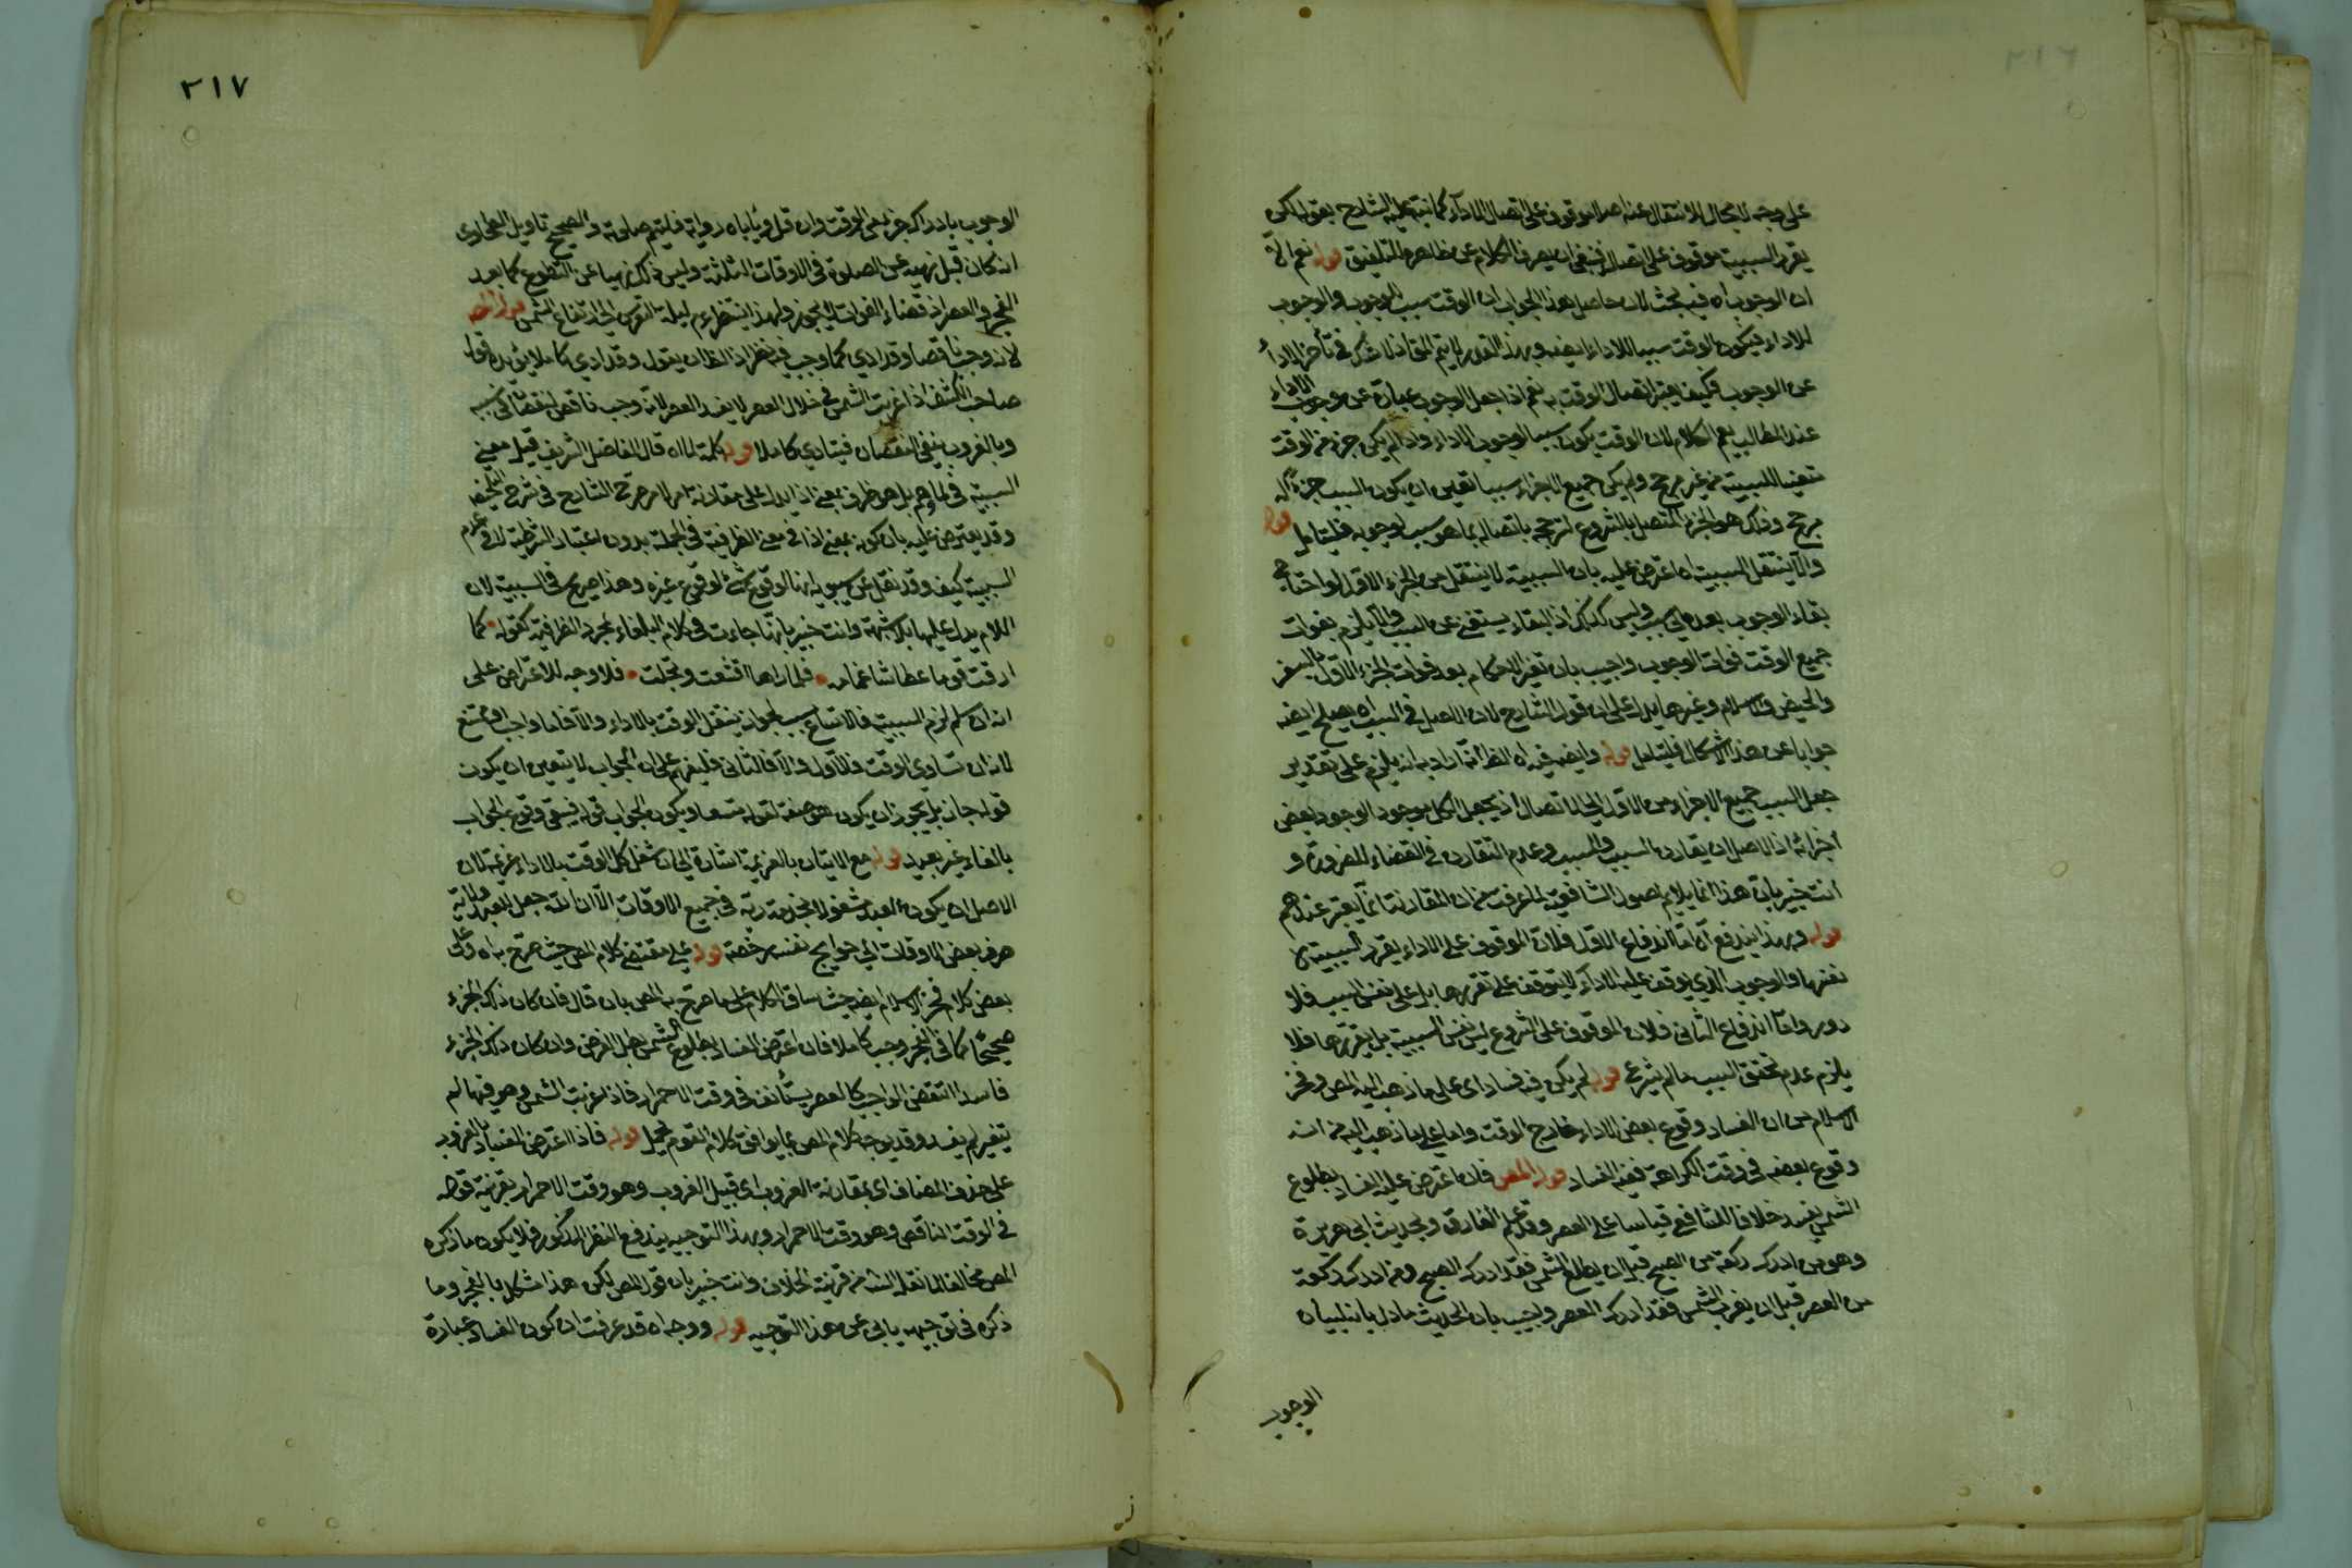 ٢١٦
على وجه لا مجال للانتقال عنه اصلا موقوف على اتصال الاداء كما نبه عليه الشارح بقوله لكن
يقرر السببية موقوف على اتصاله فينبغي ان يصرف الكلام عن ظاهره للتلفيق قوله نعم الخ
ان الوجوب اه فيه بحث لان حاصل هذا الجواب ان الوقت سبب للوجوب والوجوب
للاداء فيكون الوقت سببا للاداء ايضا وبهذا القدر لا يتم المق اذ لا شك في تأخر الاداء
عن الوجوب فكيف يعتبر اتصال الوقت به نعم اذا جعل الوجوب عبارة عن وجوب الاداء
عند المطالب يعم الكلام لان الوقت يكون سببا لوجوب الاداء واذا لم يكن جزء من الوقت
متعينا للسببية من غير مرجح ولم يكن جميع الاجزاء سببا تعين ان يكون السبب جزءا له
مرجح وذلك هو الجزء المتصل بالشروع لترجحه باتصاله بما هو سبب لوجوبه فليتأمل قوله
والا ينتقل السببية اه اعترض عليه بان السببية لا ينتقل من الجزء الاول لو احتاج
بقاء الوجوب بعده الى سبب وليس كذلك اذ البقاء يستغني عن السبب والا يلزم بفوات
جميع الوقت فوات الوجوب واجيب بان تغير الاحكام بعد فوات الجزء الاول بالسفر
والحيض والاسلام وغيرها يدل على ان قول الشارح لان الاصل في السبب اه يصلح ايضا
جوابا عن هذا الاشكال فليتأمل قوله وايضا فيه اه الظ انه اراد به انه يلزم على تقدير
جعل السبب جميع الاجزاء من الاول الى الاتصال اذ يجعل الكل موجودا لوجود بعض
اجزائه اذ الاصل ان يقارن السبب والمسبب وعدم التقارن في القضاء للضرورة و
انت خبير بان هذا انما يلايم اصول الشافعية لما عرفت من ان المقارنة انما يعتبر عندهم
قوله وبهذا يندفع اه اما اندفاع الاول فلان الموقوف على الاداء يقرر السببية لا
نفسها والوجوب الذي يوقف عليه الاداء لا يتوقف على تقررها بل على نفس السبب فلا
دور واما اندفاع الثاني فلان الموقوف على الشروع ليس نفس السببية بل تقررها فلا
يلزم عدم تحقق السبب ما لم يشرع قوله لم يكن فيه فسادا اي على ما ذهب اليه المص وفخر
الاسلام من ان الفساد وقوع بعض الاداء خارج الوقت واما على ما ذهب اليه من انه
وقوع بعضه في وقت الكراهة ففيه الفساد قوله المص فان اعترض عليه الفساد بطلوع
الشمس يفسد خلافا للشافعي قياسا على العصر وقد علم الفارق وبحديث ابي هريرة
وهو من ادرك ركعة من الصبح قبل ان يطلع الشمس فقد ادرك الصبح ومن ادرك ركعة
من العصر قبل ان يغرب الشمس فقد ادرك العصر واجيب بان الحديث مأول بانه لبيان
الوجوب
٢١٧
الوجوب بادراك جزء من الوقت وان قل ويأباه رواية فليتم صلوته والصحيح تاويل الطحاوي
انه كان قبل نهيه عن الصلوة في الاوقات الثلثة وليس ذلك نهيا عن التطوع كما بعد
الفجر والعصر اذ قضاء الفوائت لا يجوز ولهذا انتظر ء م ليلة التعريس الى ارتفاع الشمس قوله المص
لانه وجب ناقصا وقد ادي كما وجب فيه نظر اذ الظ ان يقول وقد ادي كاملا يؤيده قول
صاحب الكشف اذا غربت الشمس في خلال العصر لا يفسد العصر لانه وجب ناقصا لنقصان سببه
وبالغروب ينفي النقصان فيتادي كاملا قوله كلمة لما اه قال الفاضل الشريف قيل معنى
السببية في لما وهم بل هو ظرف بمعنى اذ يدل على مقارنة امر لامر صرح الشارح في شرح التلخيص
وقد يعترض عليه بان كونه بمعنى اذا في معنى الظرفية في الجملة بدون اعتبار الشرطية لا في عدم
السببية كيف وقد نقل عن سيبويه انها لوقوع شئ لوقوع غيره وهذا صريح في السببية لان
اللام يدل عليها بلا شبهة وانت خبير بانها جاءت في كلام البلغاء لمجرد الظرفية كقوله كما
ابرقت قوما عطاشا غمامه فلما راها اقشعت وتجلت فلا وجه للاعتراض على
انه ان سلم لزم السببية فالاتساع سبب لجواز ينتقل الوقت بالاداء والا فاما واجب او ممتنع
لانه ان تساوى الوقت فالاول والا فالثاني فليفهم على ان الجواب لا يتعين ان يكون
قوله جاز بل يجوز ان يكون هو صفة لقوله متسعا ويكون الجواب قوله فبقي وقوع الجواب
بالفاء غير بعيد قوله مع الاتيان بالعزيمة اشارة الى ان شغل كل الوقت بالاداء عزيمة لان
الاصل ان يكون العبد مشغولا بخدمة ربه في جميع الاوقات الا ان الله جعل للعبد ولاية
صرف بعض الاوقات الى حوايج نفسه رخصة قوله على مقتضى كلام المص حيث صرح به اه وعلى
بعض كلام فخر الاسلام ايضا حيث ساق الكلام على ما صرح به المص بان قال فان كان ذلك الجزء
صحيحا كما في الفجر وجب كاملا فان اعترض الفساد بطلوع الشمس بطل الفرض وان كان ذلك الجزء
فاسدا انتقض الواجب كالعصر يستأنف في وقت الاحمرار فاذا غربت الشمس وهو فيها لم
يتغير لم يفسد وقد يوجه كلام المص بما يوافق كلام القوم بحمل قوله فاذا اعترض الفساد بالغروب
على حذف المضاف اي بمقارنة الغروب اي قبيل الغروب وهو وقت الاحمرار بقرينة قوله
في الوقت الناقص وهو وقت الاحمرار وبهذا التوجيه يندفع النظر المذكور فلا يكون ما ذكره
المص مخالفا لما نقله الش من قرينة الخلاف وانت خبير بان قول المص لكن هذا مشكل بالفجر وما
ذكره في توجيهه يابى عن هذا التوجيه قوله ووجه اه قد عرفت ان كون الفساد عبارة